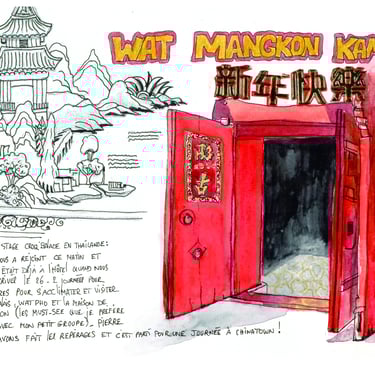 WAT MANGKON KAM
新年快樂
STAGE CROQ'BALADE EN THAÏLANDE :
OUS A REJOINT CE MATIN ET
ÉTAIT DÉJÀ À L'HÔTEL QUAND NOUS
RIVÉ LE 26 - 2 JOURNÉES POUR
RES POUR S'ACCLIMATER ET VISITER
AIS, WAT PHO ET LA MAISON DE
ON (LES MUST-SEE QUE JE PRÉFÈRE
AVEC MON PETIT GROUPE). PIERRE
AVONS FAIT LES REPÉRAGES ET C'EST PARTI POUR UNE JOURNÉE À CHINATOWN !